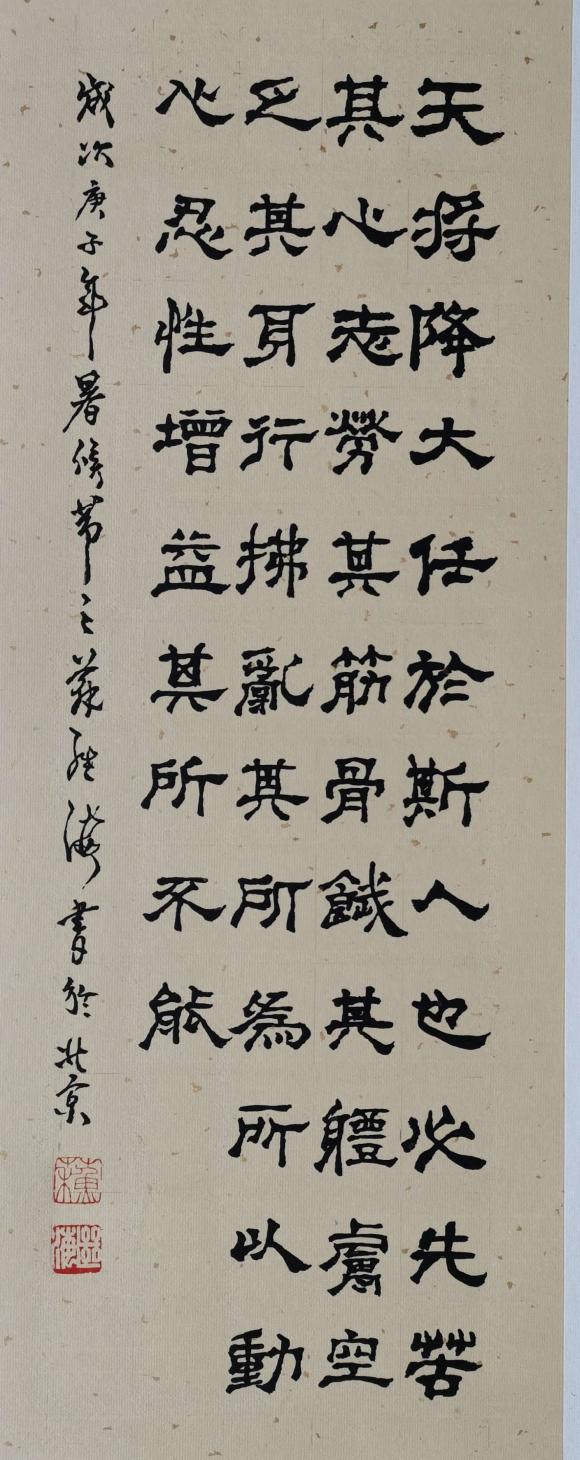 天将降大任於斯人也必先苦
其心志勞其筋骨餓其軆膚空
乏其身行拂亂其所為所以動
心忍性增益其所不能
歲次庚子年暑 蘇 海書於北京